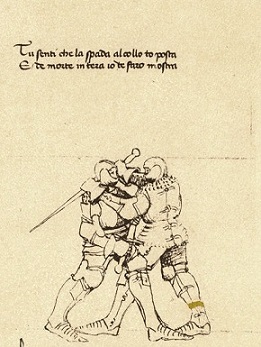 Tu senti che la spada al collo to posta
E de morte in tera io te faro mostra